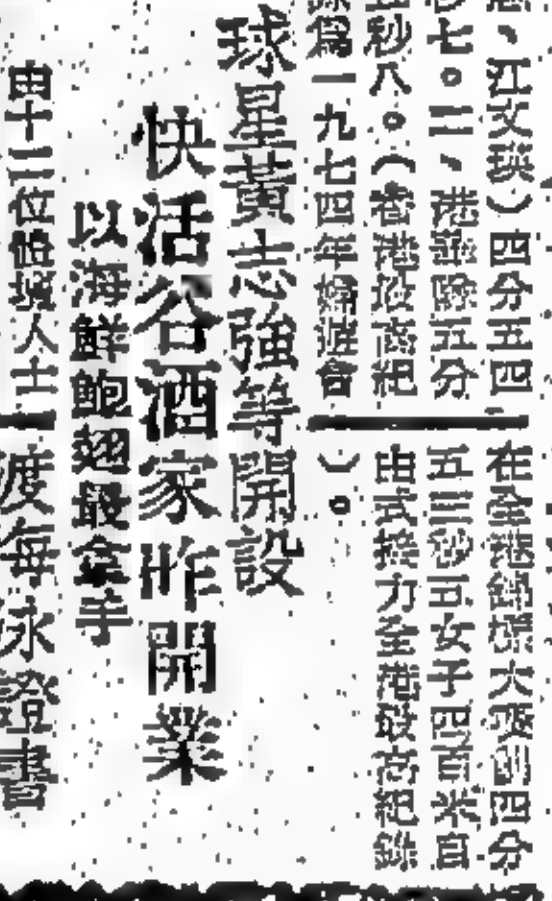 、江文瑛）四分五四
秒七。二、港華隊五分
五秒八。（香港最高紀
錄爲一九七四年婦遊會
在全港錦標大項創四分
五三秒五女子四百米自
由式接力全港最高紀錄
）。
球星黃志強等開設
快活谷酒家昨開業
以海鮮鮑翅最拿手
由十二位體壇人士
渡海泳證書